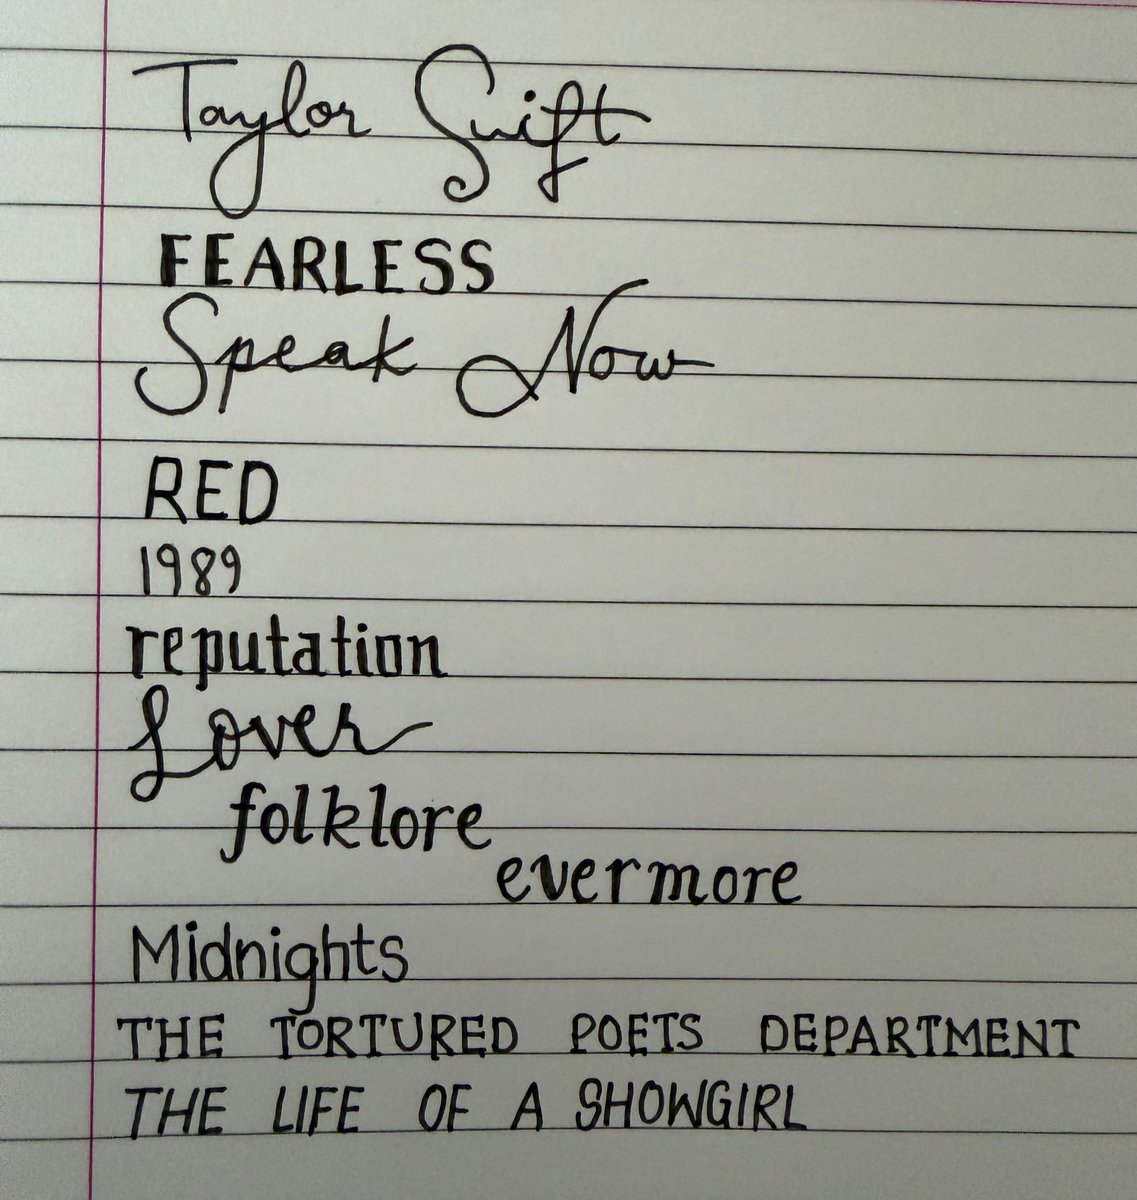 Taylor Swift
FEARLESS
Speak Now
RED
1989
reputation
Lover
folklore
evermore
Midnights
THE TORTURED POETS DEPARTMENT
THE LIFE OF A SHOWGIRL